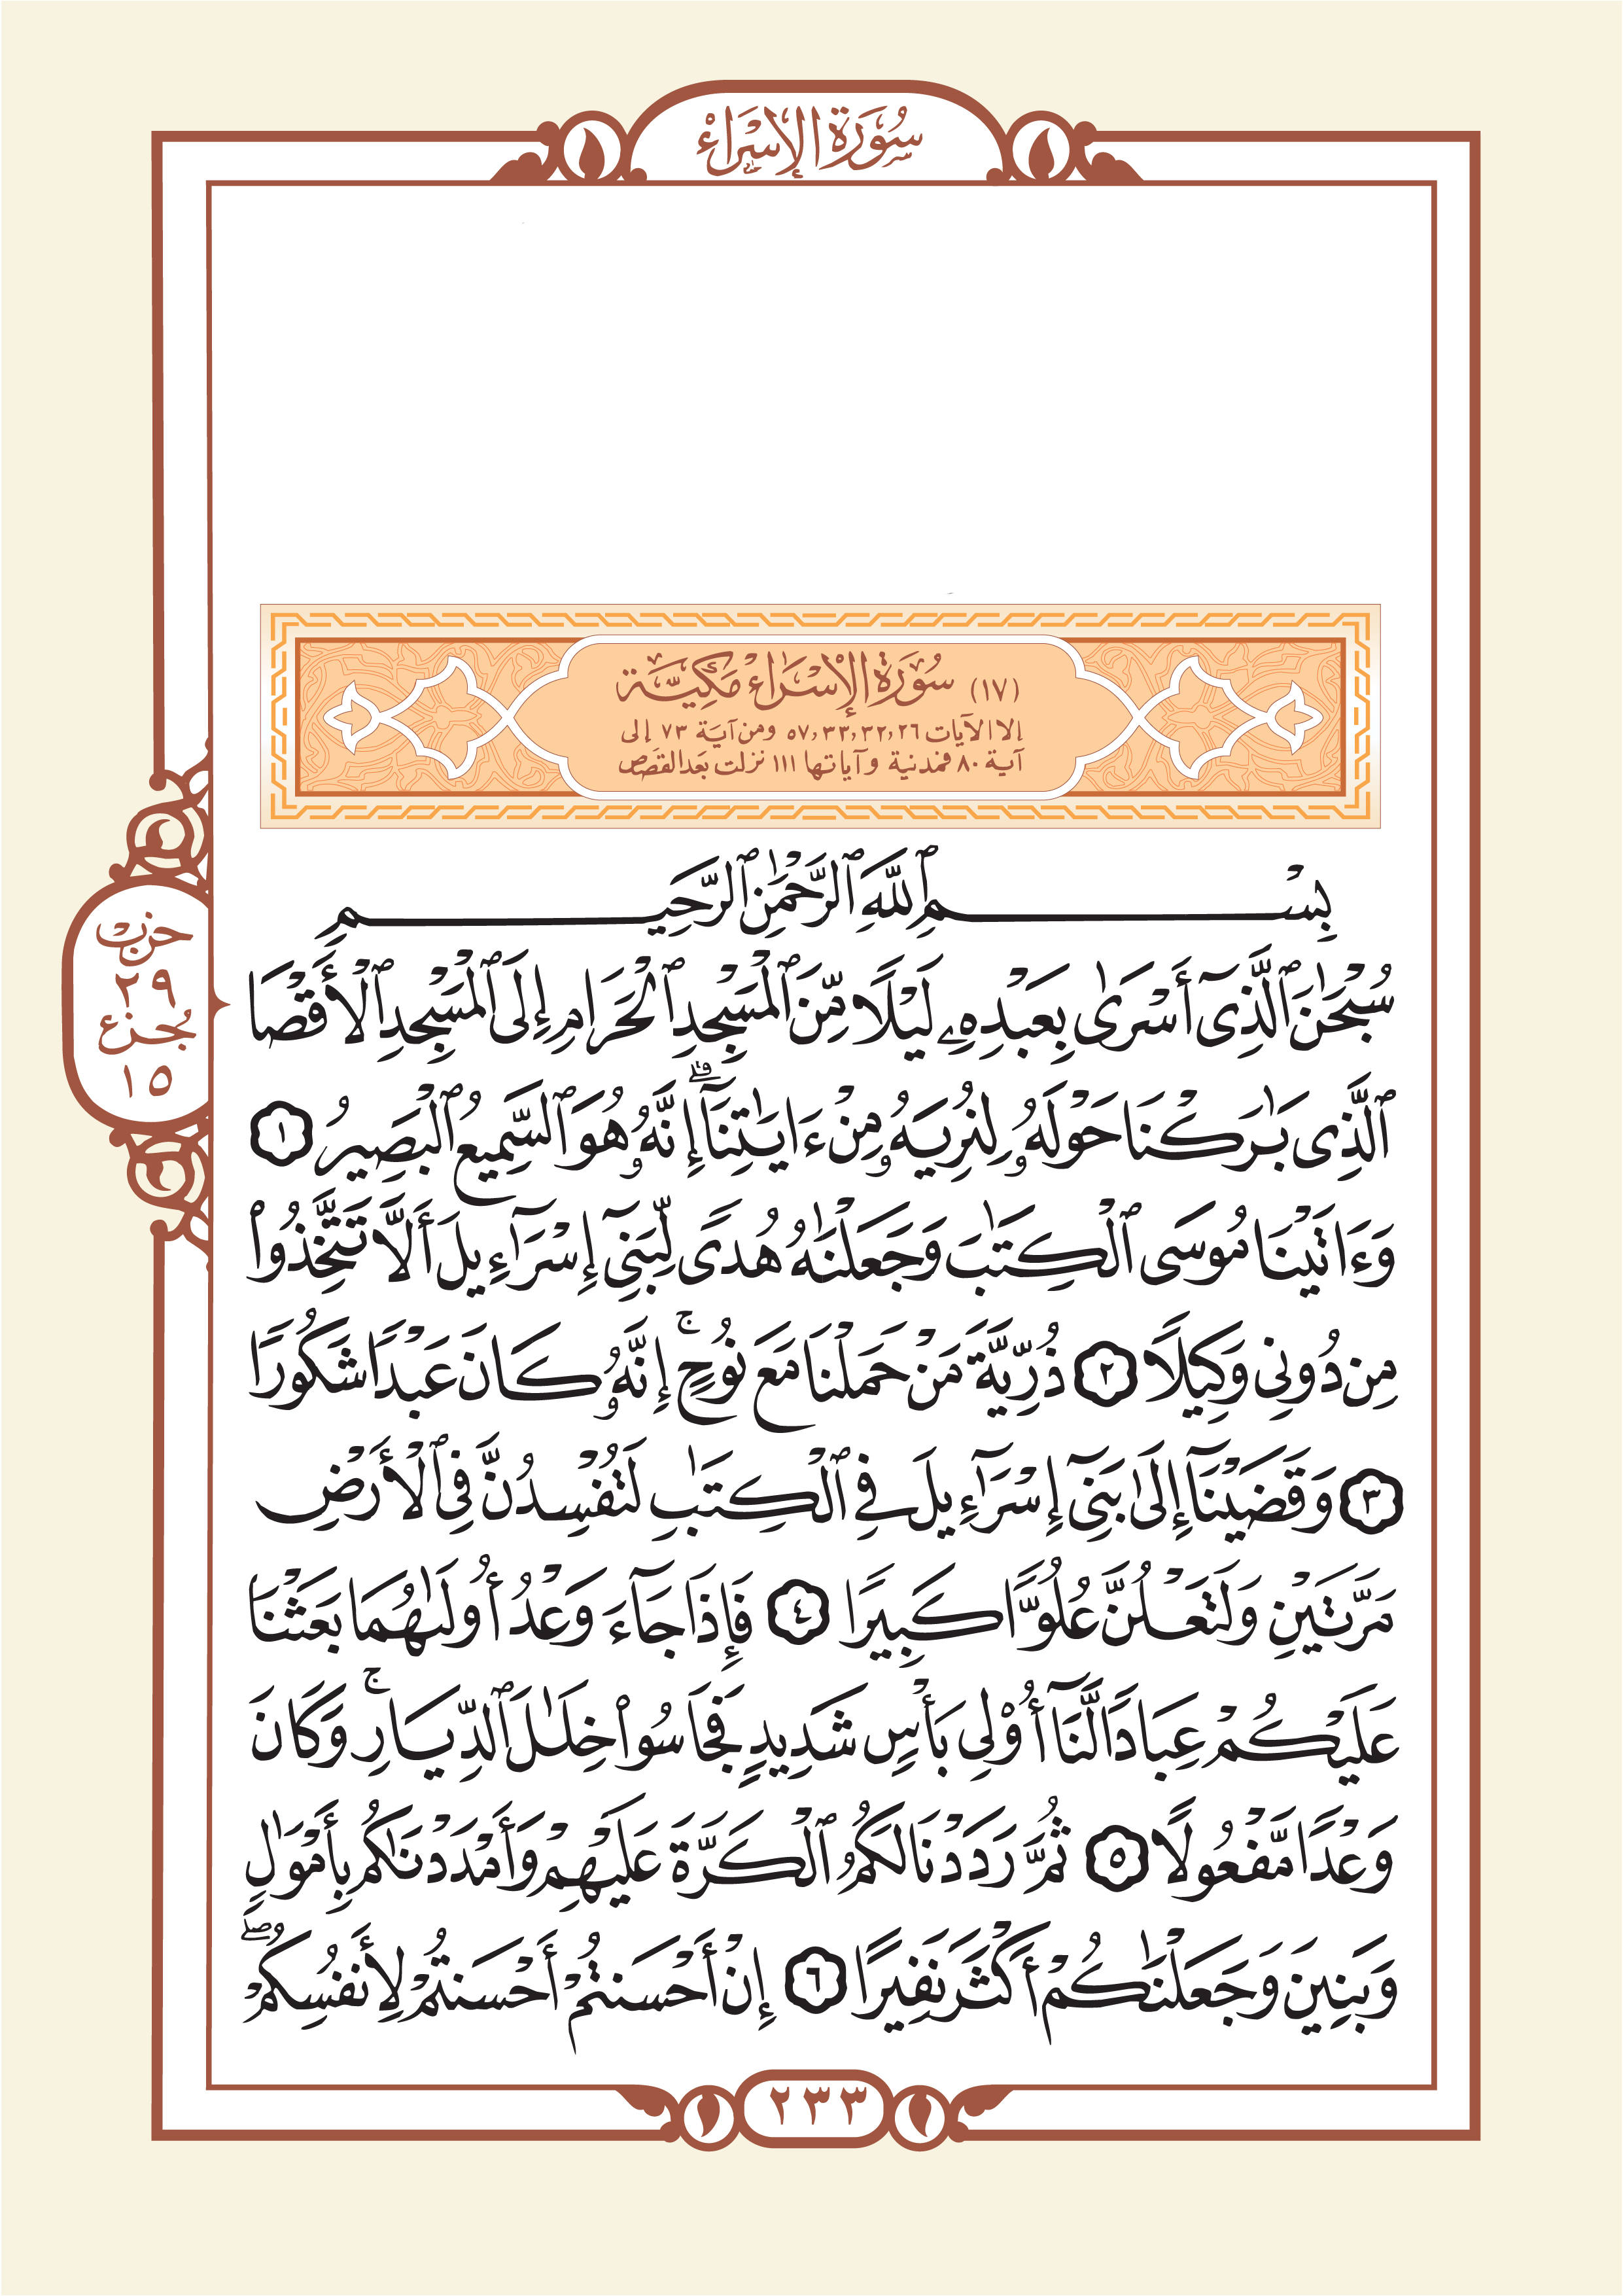 سُورَةُ الإِسْرَاءِ
(١٧) سُورَةُ الإِسْرَاءِ مَكِيَّة
إلا الآيات ٢٦,٣٢,٣٣,٥٧ ومن آية ٧٣ إلى
آية ٨٠ فمدنية وآياتها ١١١ نزلت بعد القصص
بِسْمِ ٱللَّهِ ٱلرَّحْمَٰنِ ٱلرَّحِيمِ
سُبْحَٰنَ ٱلَّذِىٓ أَسْرَىٰ بِعَبْدِهِۦ لَيْلًا مِّنَ ٱلْمَسْجِدِ ٱلْحَرَامِ إِلَى ٱلْمَسْجِدِ ٱلْأَقْصَا
ٱلَّذِى بَٰرَكْنَا حَوْلَهُۥ لِنُرِيَهُۥ مِنْ ءَايَٰتِنَآ ۚ إِنَّهُۥ هُوَ ٱلسَّمِيعُ ٱلْبَصِيرُ ١
وَءَاتَيْنَا مُوسَى ٱلْكِتَٰبَ وَجَعَلْنَٰهُ هُدًى لِّبَنِىٓ إِسْرَٰٓءِيلَ أَلَّا تَتَّخِذُوا۟
مِن دُونِى وَكِيلًا ٢ ذُرِّيَّةَ مَنْ حَمَلْنَا مَعَ نُوحٍ ۚ إِنَّهُۥ كَانَ عَبْدًا شَكُورًا
٣ وَقَضَيْنَآ إِلَىٰ بَنِىٓ إِسْرَٰٓءِيلَ فِى ٱلْكِتَٰبِ لَتُفْسِدُنَّ فِى ٱلْأَرْضِ
مَرَّتَيْنِ وَلَتَعْلُنَّ عُلُوًّا كَبِيرًا ٤ فَإِذَا جَآءَ وَعْدُ أُولَىٰهُمَا بَعَثْنَا
عَلَيْكُمْ عِبَادًا لَّنَآ أُو۟لِى بَأْسٍ شَدِيدٍ فَجَاسُوا۟ خِلَٰلَ ٱلدِّيَارِ ۚ وَكَانَ
وَعْدًا مَّفْعُولًا ٥ ثُمَّ رَدَدْنَا لَكُمُ ٱلْكَرَّةَ عَلَيْهِمْ وَأَمْدَدْنَٰكُم بِأَمْوَٰلٍ
وَبَنِينَ وَجَعَلْنَٰكُمْ أَكْثَرَ نَفِيرًا ٦ إِنْ أَحْسَنتُمْ أَحْسَنتُمْ لِأَنفُسِكُمْ ۖ
حزب
٢٩
جزء
١٥
٢٣٣